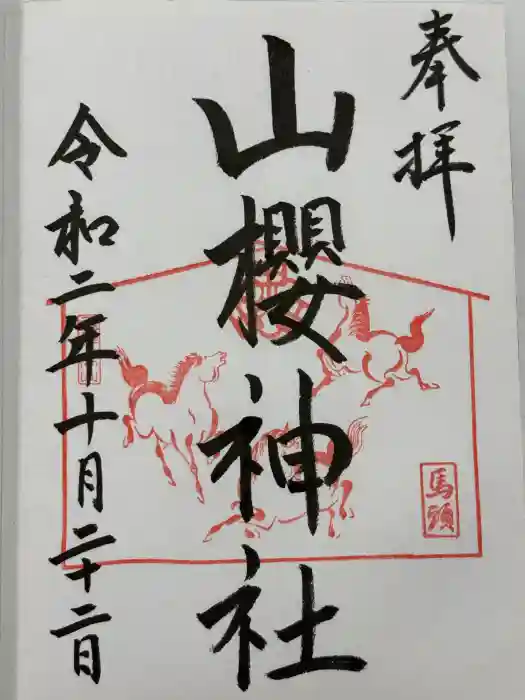 奉拝
山櫻神社
馬頭
令和二年十月二十二日